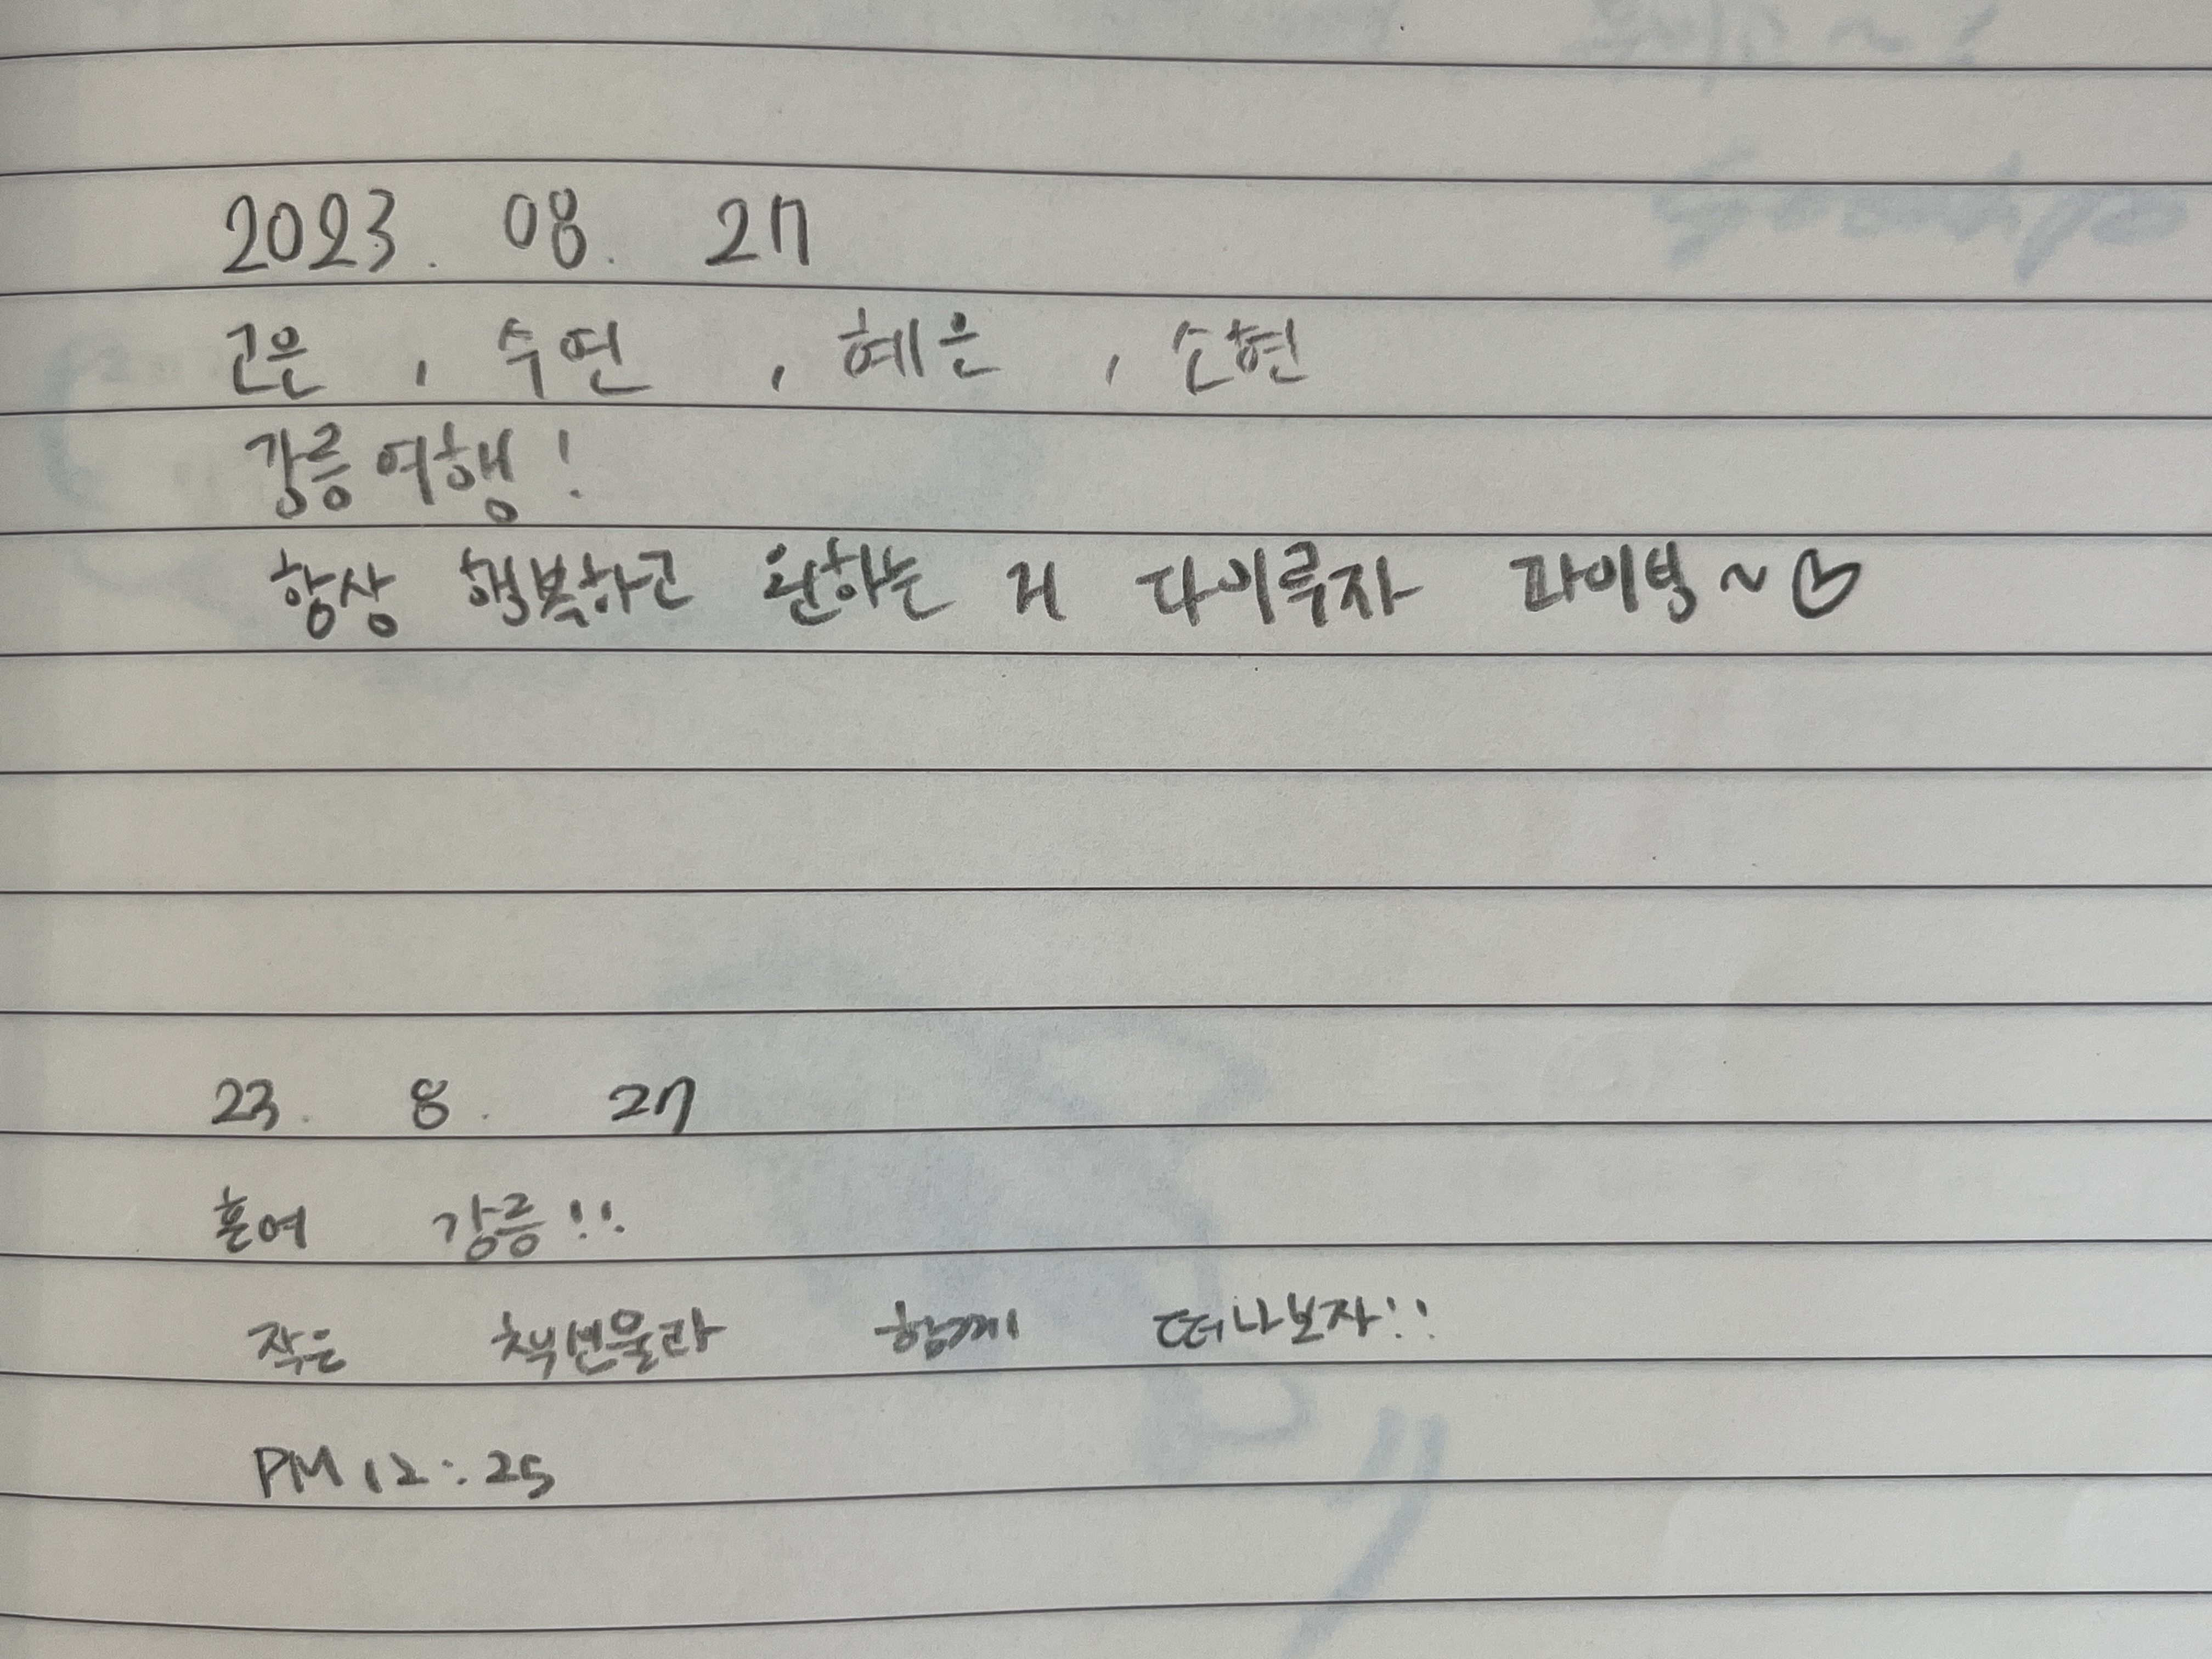 2023. 08. 27
고은, 수연, 혜은, 소현
강릉여행!
항상 행복하고 원하는 거 다이루자 파이팅~♡
23. 8. 27
혼여 강릉!!
작은 함께 떠나보자!!
PM 12:25